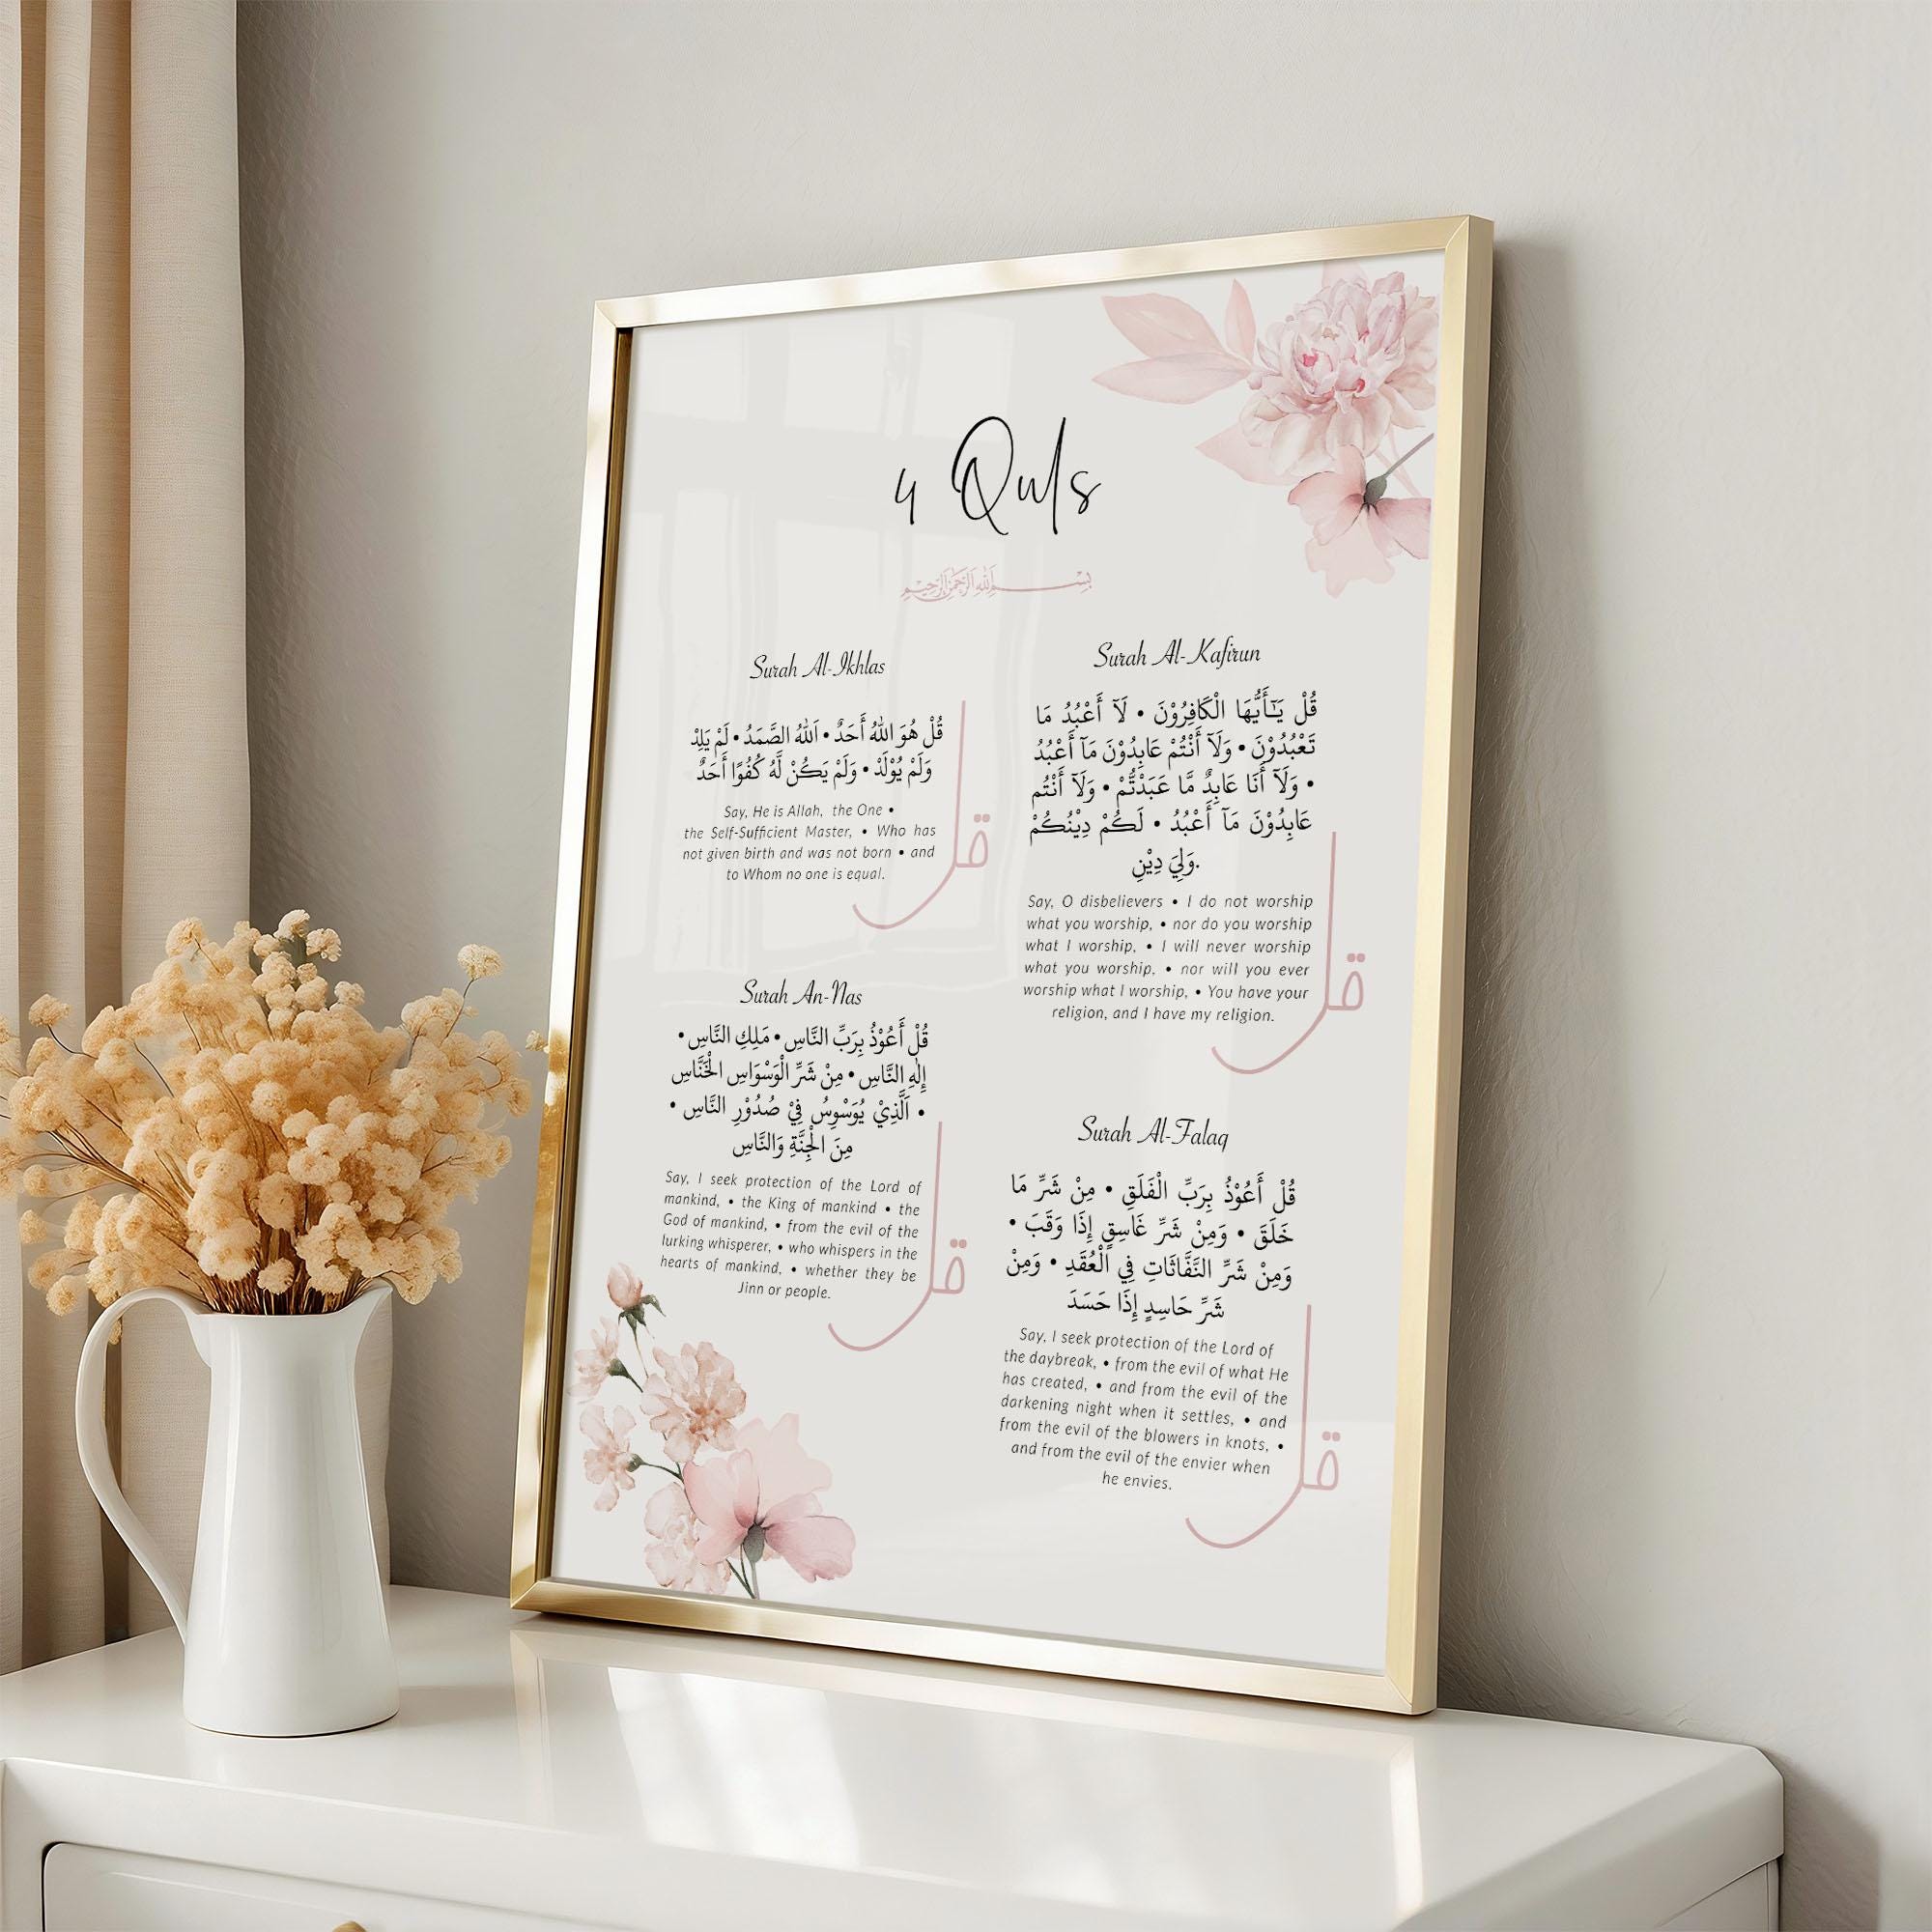 4 Quls
بِسْمِ اللهِ الرَّحْمٰنِ الرَّحِيْمِ
Surah Al-Ikhlas
قُلْ هُوَ اللهُ أَحَدٌ • اَللهُ الصَّمَدُ • لَمْ يَلِدْ
وَلَمْ يُوْلَدْ • وَلَمْ يَكُنْ لَّهُ كُفُوًا أَحَدٌ
Say, He is Allah, the One •
the Self-Sufficient Master, • Who has
not given birth and was not born • and
to Whom no one is equal.
قل
Surah Al-Kafirun
قُلْ يَـٰٓأَيُّهَا الْكَافِرُوْنَ • لَآ أَعْبُدُ مَا
تَعْبُدُوْنَ • وَلَآ أَنْتُمْ عَابِدُوْنَ مَآ أَعْبُدُ
• وَلَآ أَنَا عَابِدٌ مَّا عَبَدْتُّمْ • وَلَآ أَنْتُم
عَابِدُوْنَ مَآ أَعْبُدُ • لَكُمْ دِيْنُكُمْ
وَلِيَ دِيْنِ.
Say, O disbelievers • I do not worship
what you worship, • nor do you worship
what I worship, • I will never worship
what you worship, • nor will you ever
worship what I worship, • You have your
religion, and I have my religion.
قل
Surah An-Nas
قُلْ أَعُوْذُ بِرَبِّ النَّاسِ • مَلِكِ النَّاسِ •
إِلٰهِ النَّاسِ • مِنْ شَرِّ الْوَسْوَاسِ الْخَنَّاسِ
• اَلَّذِيْ يُوَسْوِسُ فِيْ صُدُوْرِ النَّاسِ •
مِنَ الْجِنَّةِ وَالنَّاسِ
Say, I seek protection of the Lord of
mankind, • the King of mankind • the
God of mankind, • from the evil of the
lurking whisperer, • who whispers in the
hearts of mankind, • whether they be
Jinn or people.
قل
Surah Al-Falaq
قُلْ أَعُوْذُ بِرَبِّ الْفَلَقِ • مِنْ شَرِّ مَا
خَلَقَ • وَمِنْ شَرِّ غَاسِقٍ إِذَا وَقَبَ •
وَمِنْ شَرِّ النَّفَّاثَاتِ فِي الْعُقَدِ • وَمِنْ
شَرِّ حَاسِدٍ إِذَا حَسَدَ
Say, I seek protection of the Lord of
the daybreak, • from the evil of what He
has created, • and from the evil of the
darkening night when it settles, • and
from the evil of the blowers in knots, •
and from the evil of the envier when
he envies.
قل